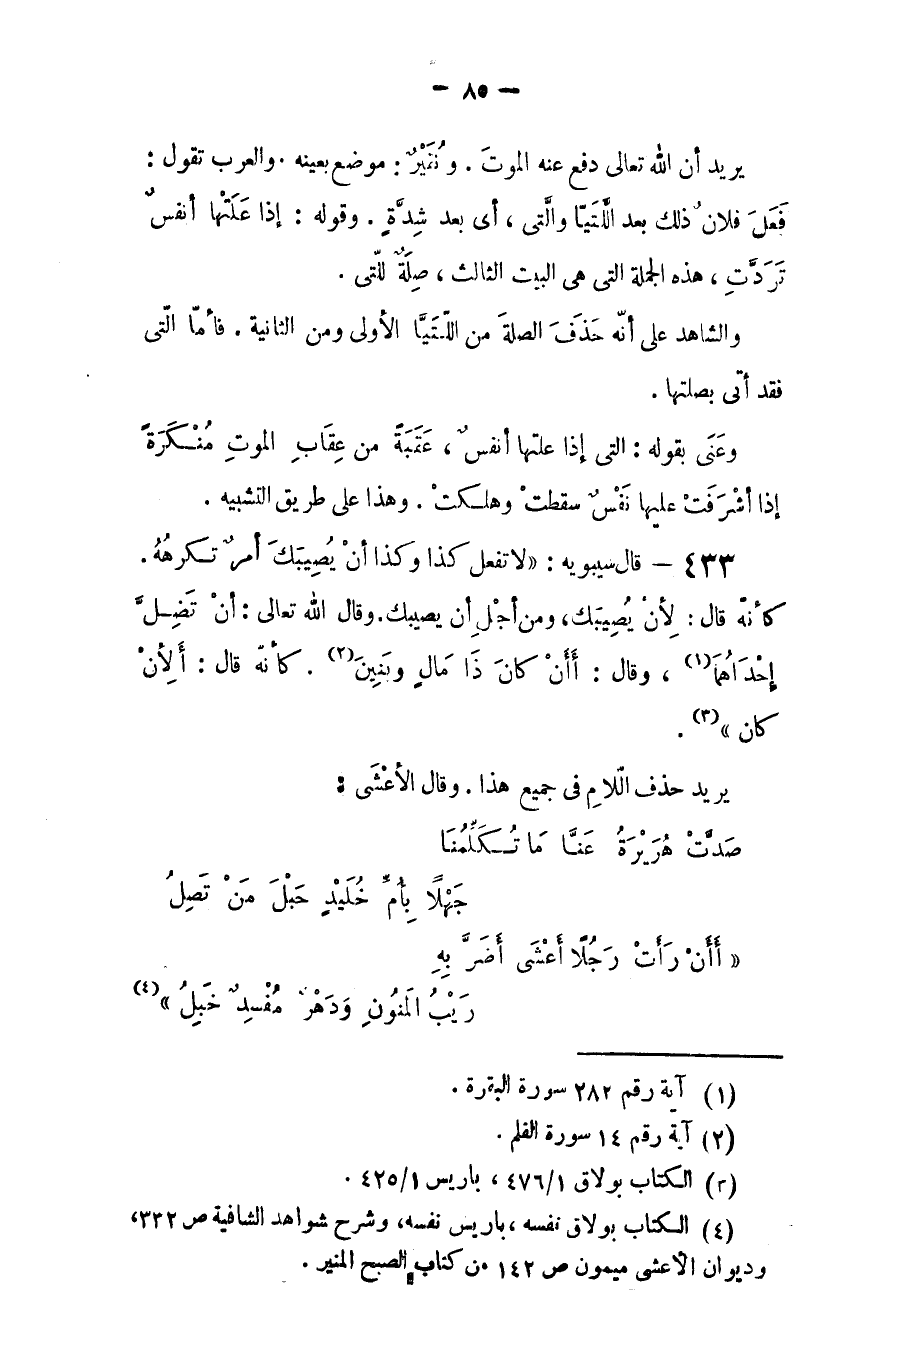 — ٨٥ —
يريد أن الله تعالى دفع عنه الموتَ . و نُمَيْرٌ : موضع بعينه . والعرب تقول :
فَعَلَ فلانٌ ذلك بعد اللَّتَيّا والَّتى ، أى بعد شِدَّةٍ . وقوله : إذا عَلَتْها أنفسٌ
تَرَدَّتِ ، هذه الجملة التى هى البيت الثالث ، صِلَةٌ للّتى .
والشاهد على أنّه حَذَفَ الصلةَ من اللّتَيَّا الأولى ومن الثانية . فأمّا الّتى
فقد أتى بصلتها .
وعَنَى بقوله : التى إذا علتها أنفسٌ ، عَقَبَةً من عِقَابِ الموتِ مُنْكَرَةً
إذا أشْرَفَتْ عليها نَفْسٌ سقطتْ وهلكتْ . وهذا على طريق التشبيه .
٤٣٣ — قال سيبويه : «لا تفعل كذا وكذا أنْ يُصِيبَكَ أمرٌ تكرهُهُ .
كأنّه قال : لِأنْ يُصِيبَك، ومن أجْلِ أن يصيبك. وقال الله تعالى : أنْ تَضِلَّ
إِحْدَاهُمَا(١) ، وقال : أَأَنْ كَانَ ذَا مَالٍ وبَنِينَ(٢) . كأنّه قال : أَلِأنْ
كان »(٣) .
يريد حذف الّلامِ فى جميع هذا . وقال الأعْشَى :
صَدَّتْ هُرَيْرَةُ عَنَّا مَا تُكَلِّمُنَا
جَهْلًا بِأُمِّ خُلَيْدٍ حَبْلَ مَنْ تَصِلُ
« أَأَنْ رَأَتْ رَجُلًا أَعْشَى أَضَرَّ بِهِ
رَيْبُ المَنُونِ وَدَهْرٌ مُفْسِدٌ خَبِلُ »(٤)
(١) آية رقم ٢٨٢ سورة البقرة .
(٢) آية رقم ١٤ سورة القلم .
(٣) الكتاب بولاق ٤٧٦/١ ، باريس ٤٢٥/١ .
(٤) الكتاب بولاق نفسه ، باريس نفسه، وشرح شواهد الشافية ص ٣٣٢،
وديوان الأعشى ميمون ص ١٤٢ من كتاب الصبح المنير .